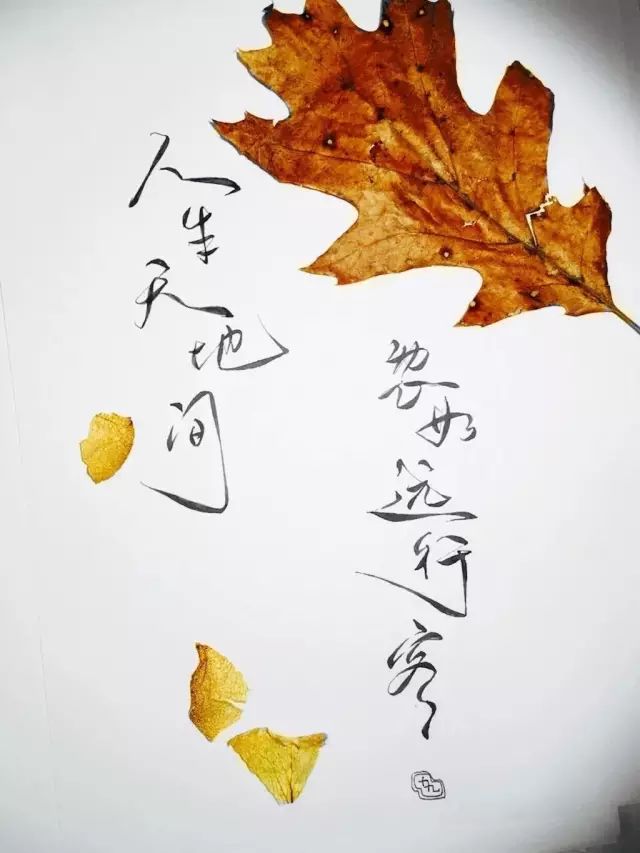 人生天地间
忽如远行客